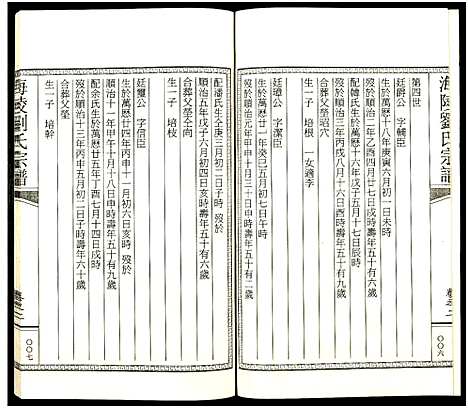 海陵劉氏宗譜
卷之二
〇〇六
第四世
廷爵公 字輔臣
生於萬歷十八年庚寅六月初一日未時
歿於順治二年乙酉四月廿七日戌時壽年五十有六歲
配韓氏生於萬歷十六年戊子七月十六日辰時
歿於順治三年丙戌八月十六日酉時壽年五十有九歲
合葬父塋
生一子 培根 一女適李
廷璋公 字潔臣
生於萬歷廿一年癸巳五月初九日戌時
歿於順治元年甲申
時壽年五十有二歲
配潘氏生仝庚三月初二日子時 歿於
順治五年戊子六月初四日亥時壽年五十有六歲
合葬父塋仝向
生一子 培枝
廷璽公 字信臣
生於萬歷廿四年丙申十一月初六日亥時 歿於
順治十一年甲午十月十八日申時壽年五十有九歲
配余氏生於萬歷廿五年丁酉七月十四日戌時
歿於順治十三年丙申五月初二日子時壽年六十歲
合葬父塋
生一子 培幹
海陵劉氏宗譜
卷之二
〇〇七